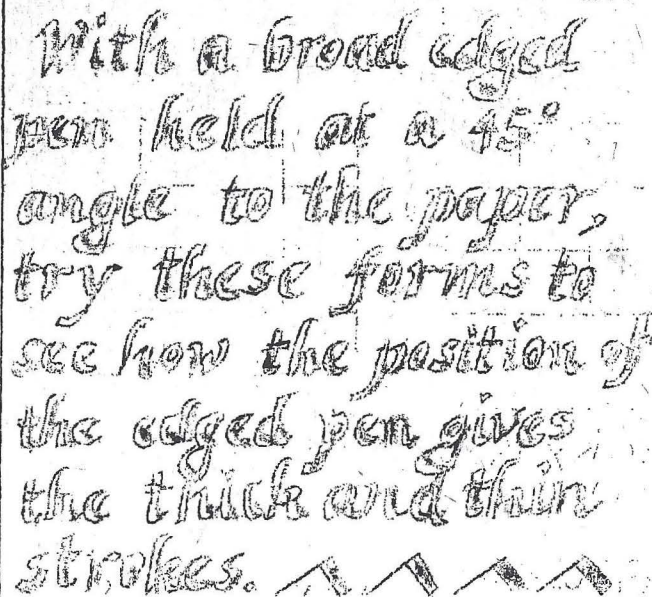 With a broad edged
pen held at a 45°
angle to the paper,
try these forms to
see how the position of
the edged pen gives
the thick and thin
strokes.